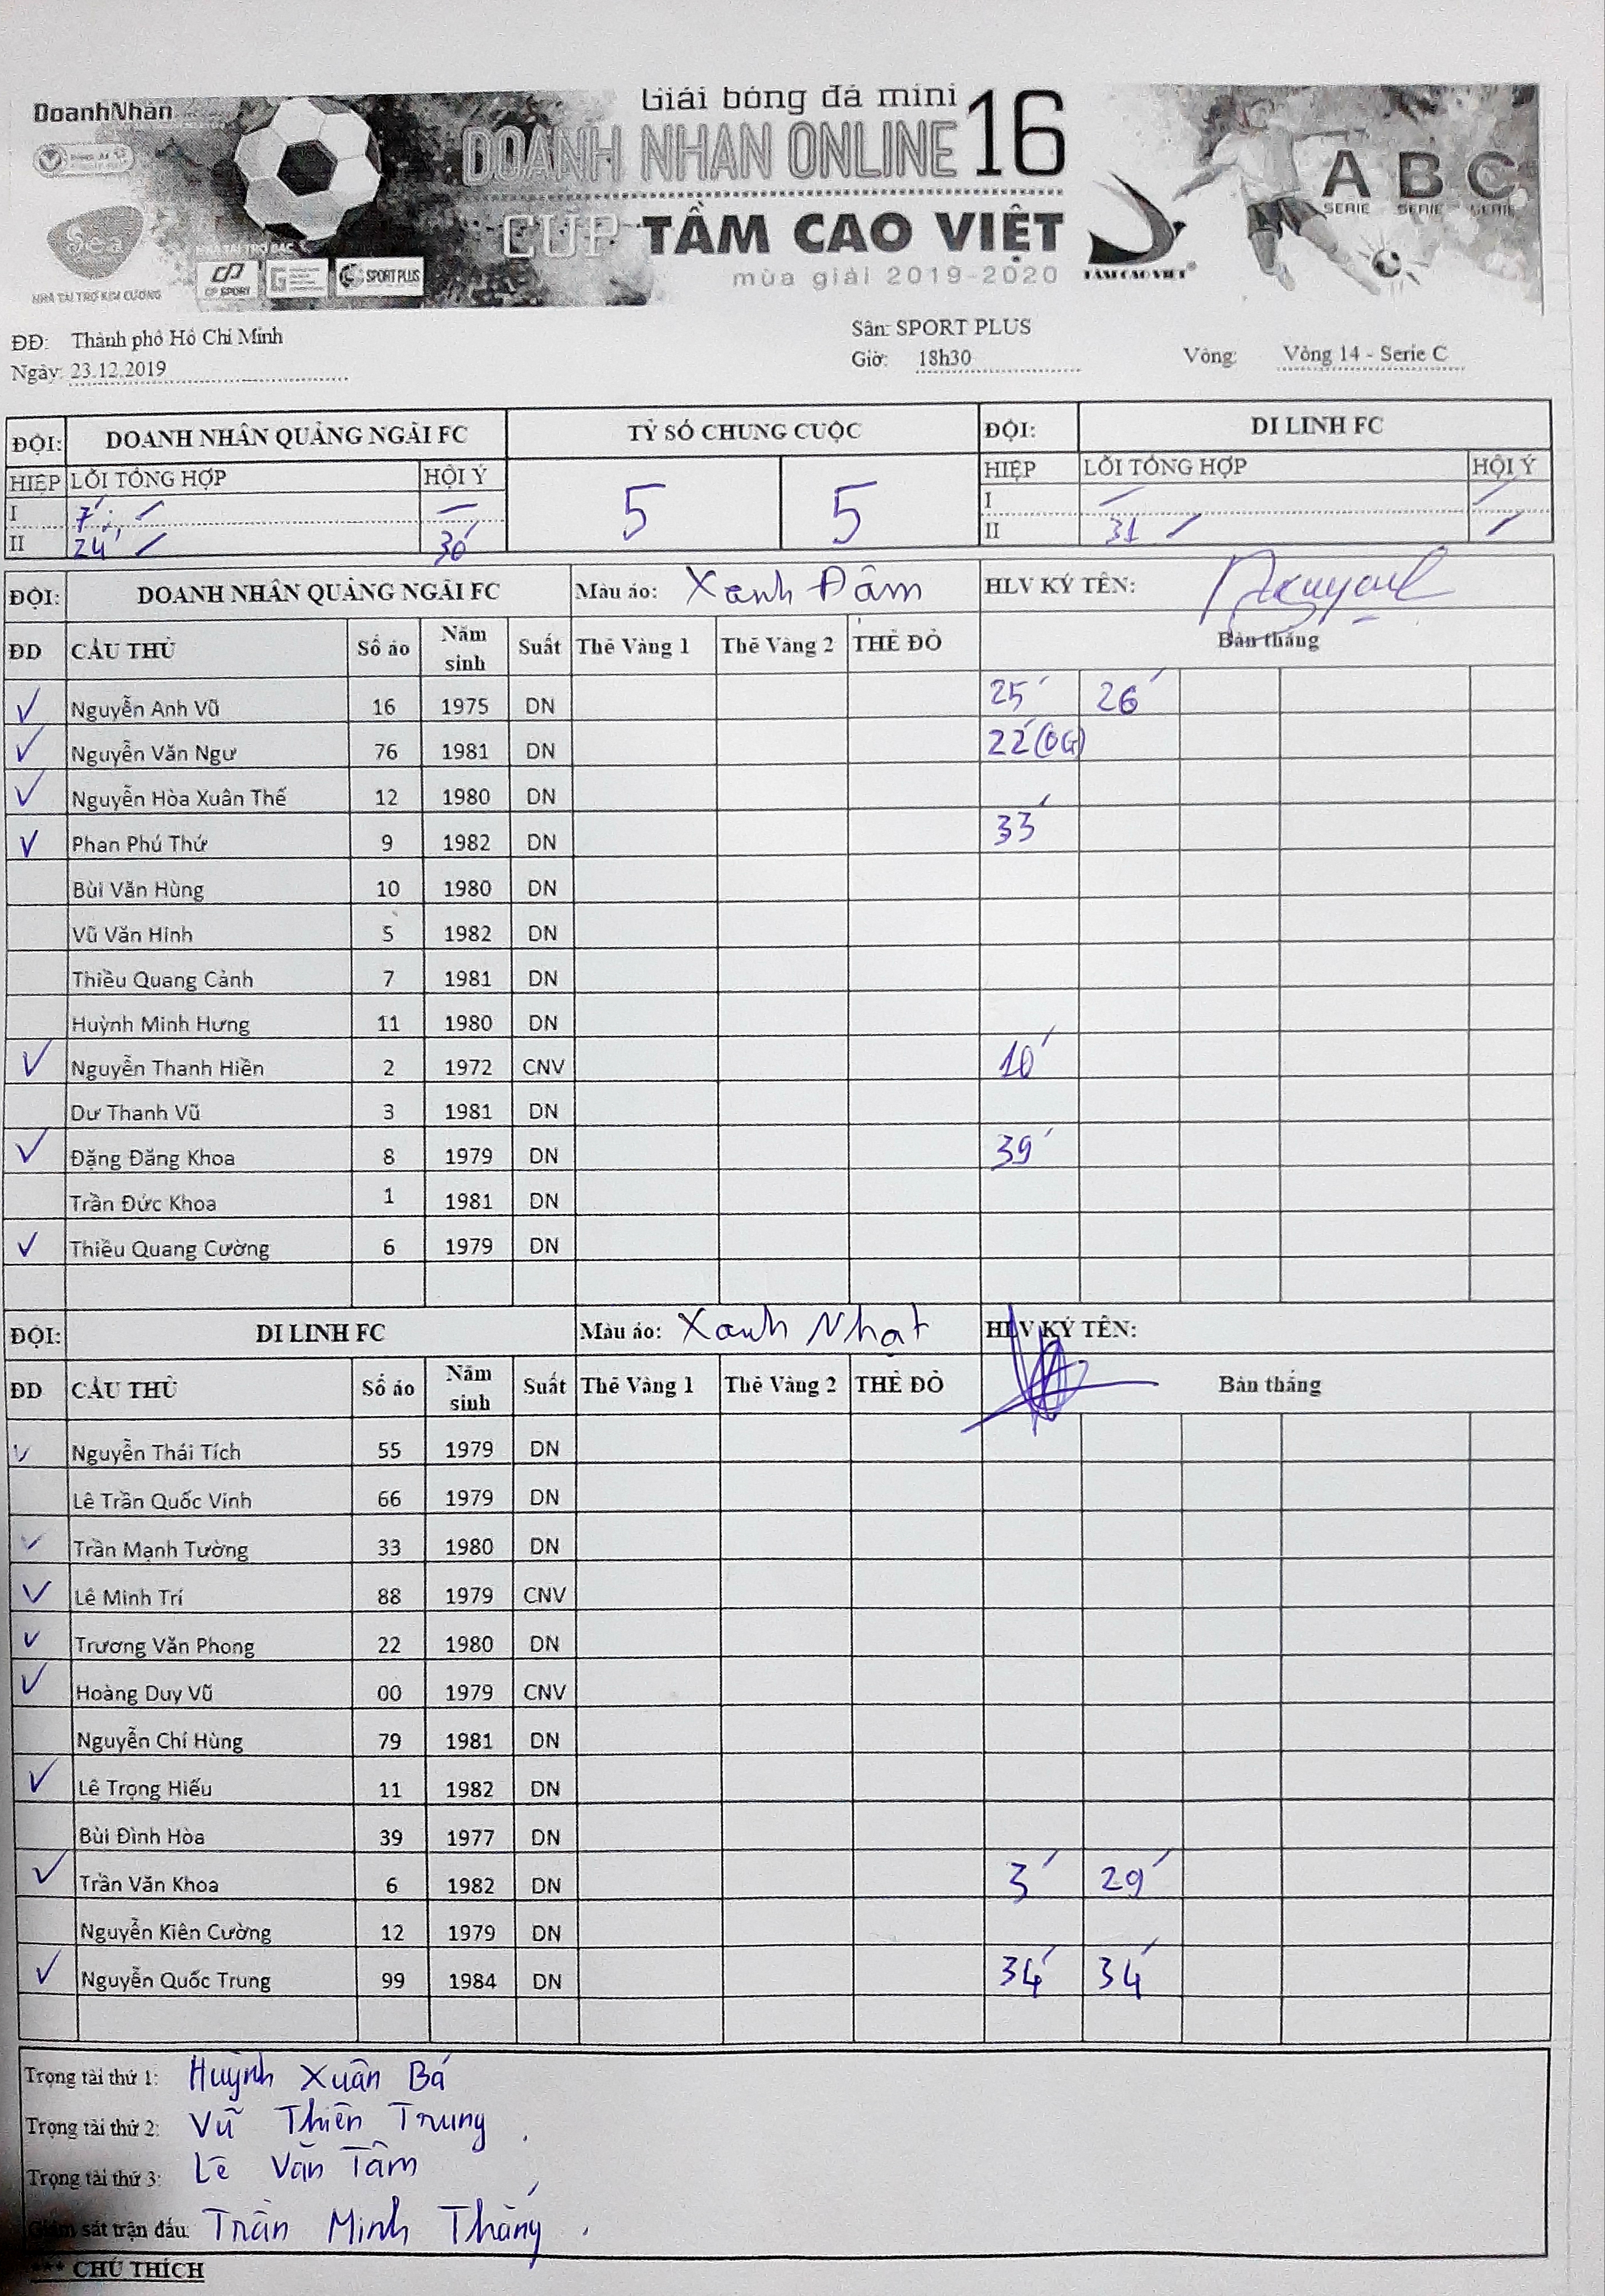 DoanhNhân
Giải bóng đá mini
DOANH NHAN ONLINE 16
CÚP TẦM CAO VIỆT
mùa giải 2019-2020
TẦM CAO VIỆT®
A B C
SERIE SERIE SERIE
Sea
NHÀ TÀI TRỢ KIM CƯƠNG
NHÀ TÀI TRỢ BẠC
CP SPORT
SPORT PLUS
ĐĐ: Thành phố Hồ Chí Minh
Sân: SPORT PLUS
Ngày: 23.12.2019
Giờ: 18h30
Vòng: Vòng 14 - Serie C
ĐỘI: DOANH NHÂN QUẢNG NGÃI FC TỶ SỐ CHUNG CUỘC ĐỘI: DI LINH FC
HIỆP LỖI TỔNG HỢP HỘI Ý 5 5 HIỆP LỖI TỔNG HỢP HỘI Ý
I 7' I
II 24' 30' II 31
ĐỘI: DOANH NHÂN QUẢNG NGÃI FC Màu áo: Xanh Đậm HLV KÝ TÊN:
ĐD CẦU THỦ Số áo Năm sinh Suất Thẻ Vàng 1 Thẻ Vàng 2 THẺ ĐỎ Bàn thắng
Nguyễn Anh Vũ 16 1975 DN 25' 26'
Nguyễn Văn Ngư 76 1981 DN 22'(OG)
Nguyễn Hòa Xuân Thế 12 1980 DN
Phan Phú Thứ 9 1982 DN 33'
Bùi Văn Hùng 10 1980 DN
Vũ Văn Hinh 5 1982 DN
Thiều Quang Cảnh 7 1981 DN
Huỳnh Minh Hưng 11 1980 DN
Nguyễn Thanh Hiền 2 1972 CNV 10'
Dư Thanh Vũ 3 1981 DN
Đặng Đăng Khoa 8 1979 DN 39'
Trần Đức Khoa 1 1981 DN
Thiều Quang Cường 6 1979 DN
ĐỘI: DI LINH FC Màu áo: Xanh Nhạt HLV KÝ TÊN:
ĐD CẦU THỦ Số áo Năm sinh Suất Thẻ Vàng 1 Thẻ Vàng 2 THẺ ĐỎ Bàn thắng
Nguyễn Thái Tích 55 1979 DN
Lê Trần Quốc Vinh 66 1979 DN
Trần Mạnh Tường 33 1980 DN
Lê Minh Trí 88 1979 CNV
Trương Văn Phong 22 1980 DN
Hoàng Duy Vũ 00 1979 CNV
Nguyễn Chí Hùng 79 1981 DN
Lê Trọng Hiếu 11 1982 DN
Bùi Đình Hòa 39 1977 DN
Trần Văn Khoa 6 1982 DN 3' 29'
Nguyễn Kiên Cường 12 1979 DN
Nguyễn Quốc Trung 99 1984 DN 34' 34'
Trọng tài thứ 1: Huỳnh Xuân Bá
Trọng tài thứ 2: Vũ Thiên Trung
Trọng tài thứ 3: Lê Văn Tâm
Giám sát trận đấu: Trần Minh Thắng
*** CHÚ THÍCH